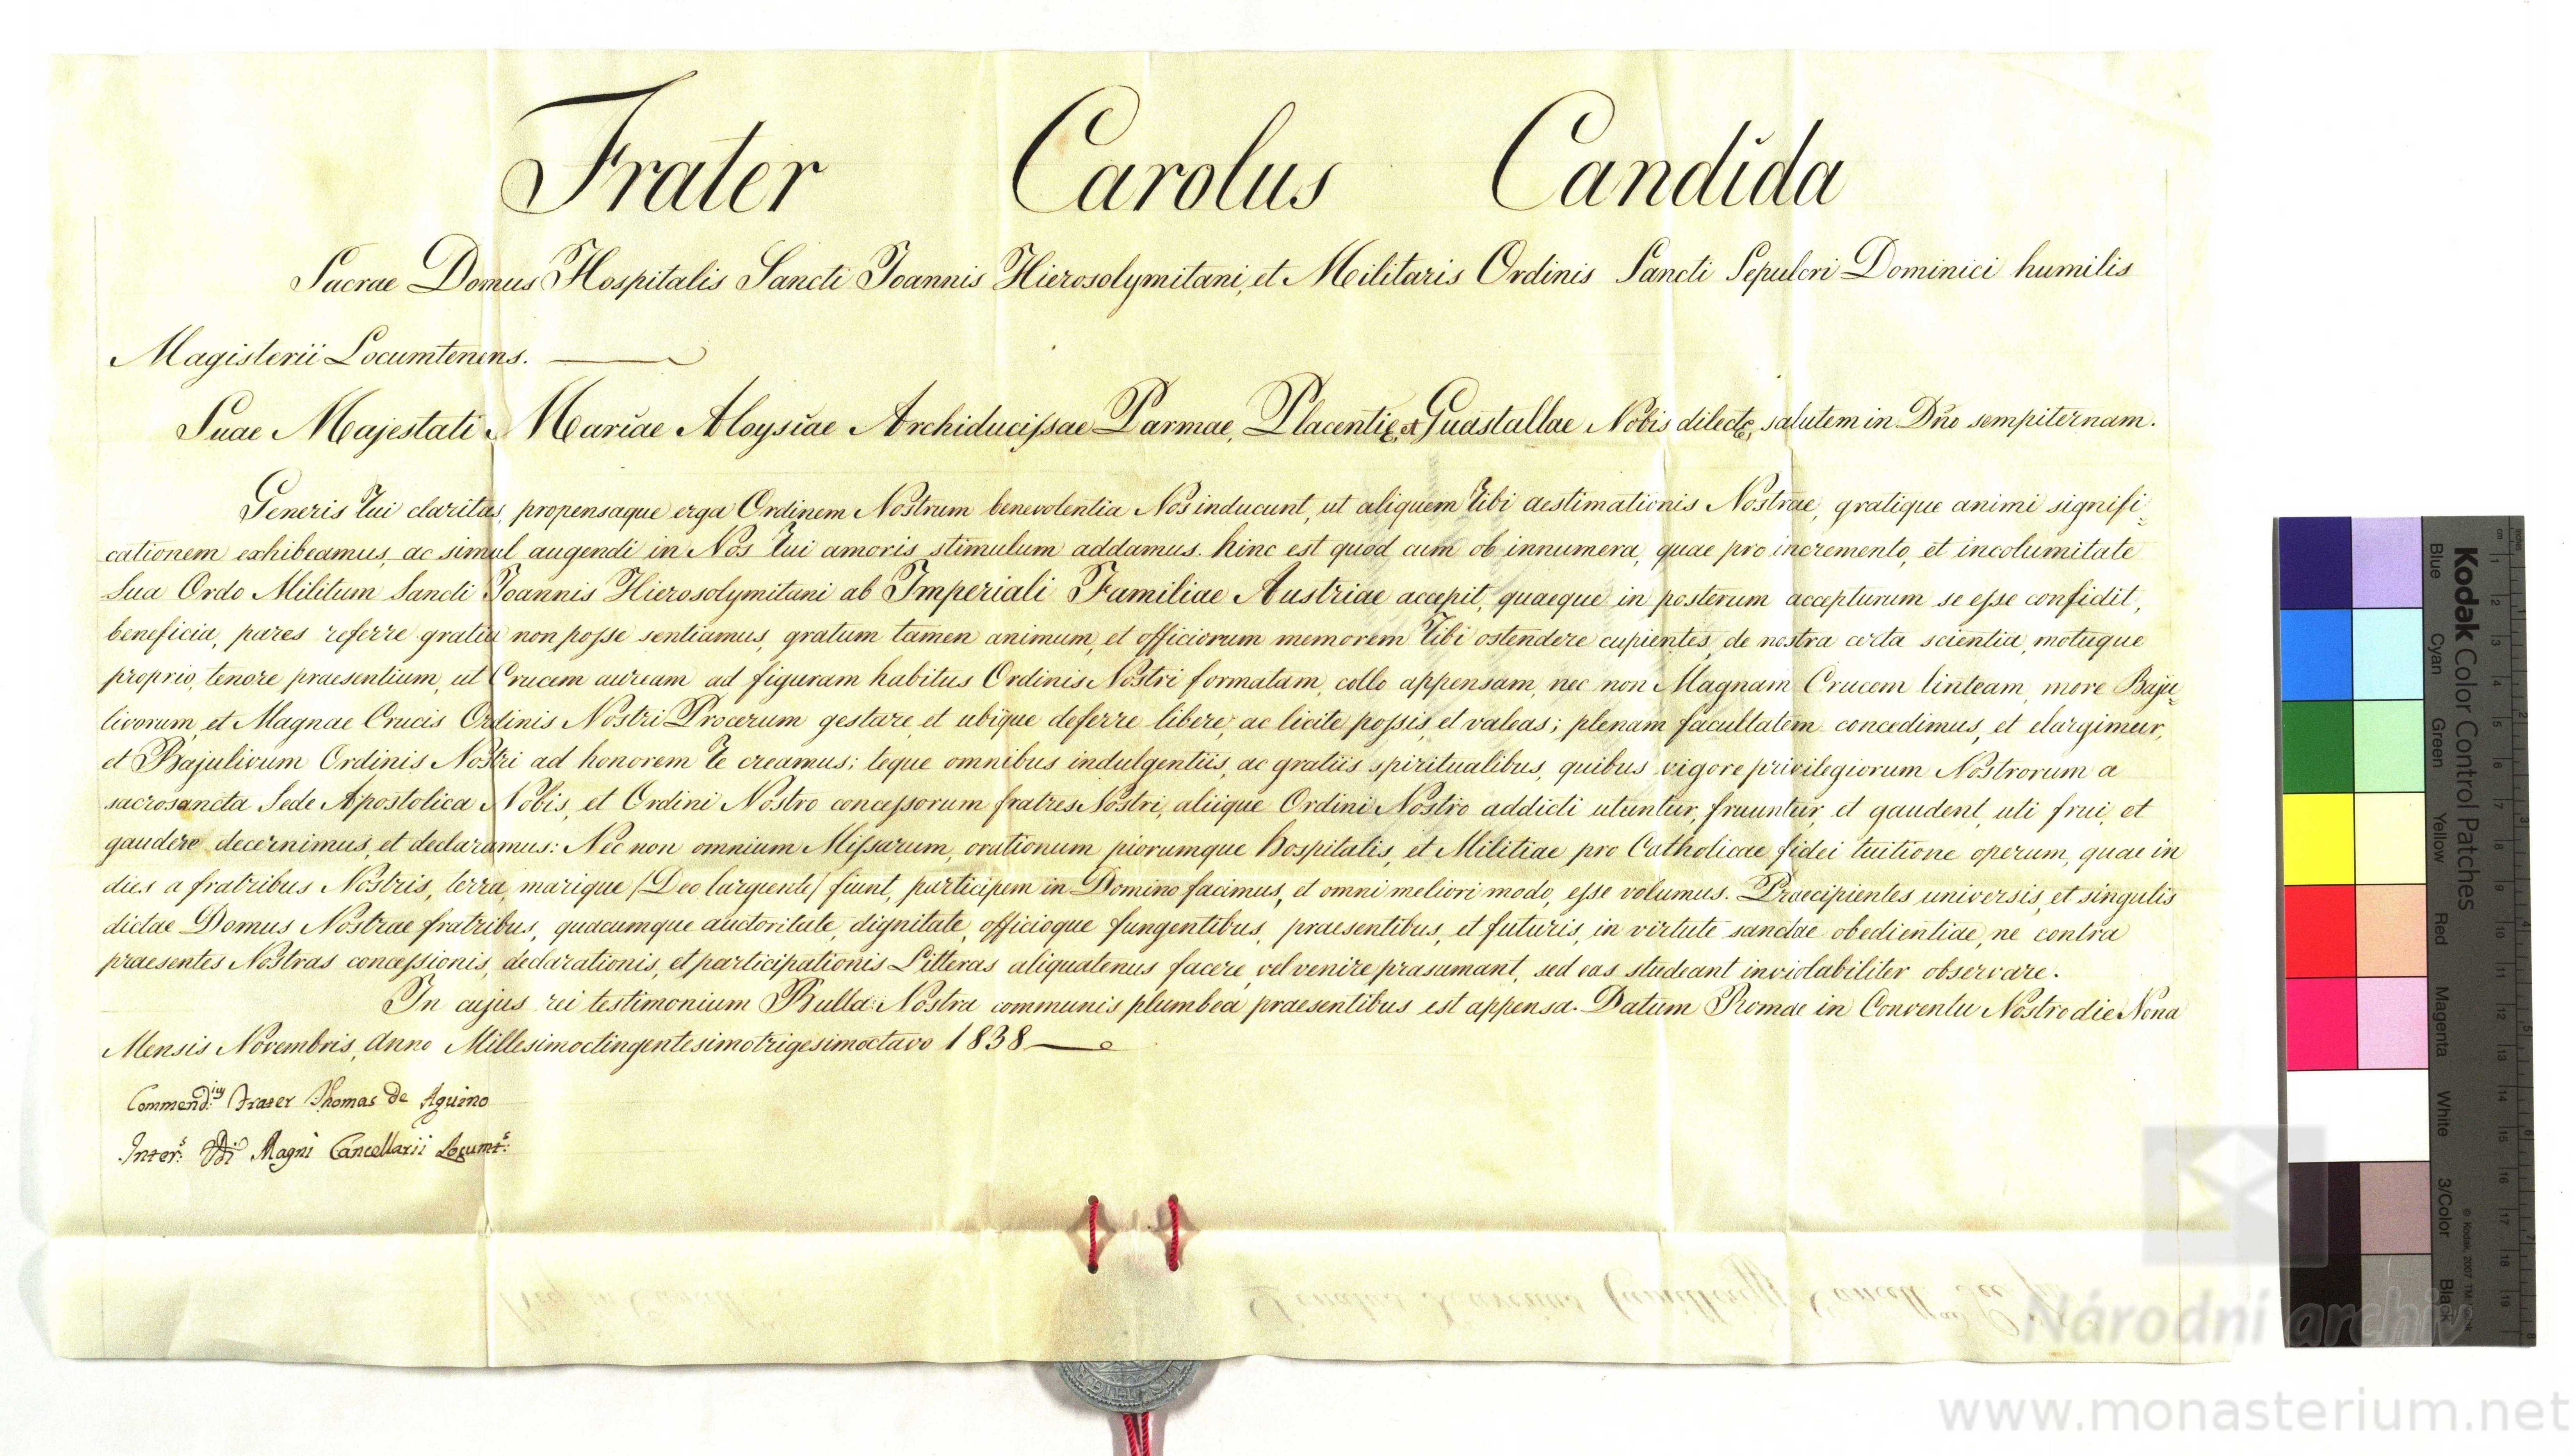 Frater Carolus Candida
Sacrae Domus Hospitalis Sancti Joannis Hierosolymitani, et Militaris Ordinis Sancti Sepulcri Dominici humilis
Magisterii Locumtenens.
Suae Majestati Mariae Aloysiae Archiducissae Parmae, Placentiae, et Guastallae Nobis dilectae, salutem in Dno sempiternam.
Generis tui claritas, propensaque erga Ordinem Nostrum benevolentia Nos inducunt, ut aliquem tibi aestimationis Nostrae, gratique animi signifi=
cationem exhibeamus, ac simul augendi in Nos tui amoris stimulum addamus. hinc est quod cum ob innumera, quae pro incremento, et incolumitate
sua Ordo Militum Sancti Joannis Hierosolymitani ab Imperiali Familiae Austriae accepit, quaeque in posterum accepturum se esse confidit,
beneficia, pares referre gratia non posse sentiamus, gratum tamen animum, et officiorum memorem tibi ostendere cupientes, de nostra certa scientia, motuque
proprio, tenore praesentium, ut Crucem auream ad figuram habitus Ordinis Nostri formatam, collo appensam, nec non Magnam Crucem linteam, more Baju=
livorum, et Magnae Crucis Ordinis Nostri Procerum gestare, et ubique deferre libere, ac licite possis, et valeas; plenam facultatem concedimus, et elargimur,
et Bajulivum Ordinis Nostri ad honorem te creamus; teque omnibus indulgentiis, ac gratiis spiritualibus, quibus vigore privilegiorum Nostrorum a
sacrosancta Sede Apostolica Nobis, et Ordini Nostro concessorum fratres Nostri, aliique Ordini Nostro addicti utuntur, fruuntur, et gaudent, uti frui, et
gaudere decernimus, et declaramus: Nec non omnium Missarum, orationum piorumque hospitalis, et Militiae pro Catholicae fidei tuitione operum, quae in
dies a fratribus Nostris, terra, marique (Deo largiente) fiunt, participem in Domino facimus, et omni meliori modo, esse volumus. Praecipientes universis, et singulis
dictae Domus Nostrae fratribus, quacumque auctoritate, dignitate, officioque fungentibus, praesentibus, et futuris, in virtute sanctae obedientiae, ne contra
praesentes Nostras concessionis, declarationis, et participationis Litteras aliquatenus facere, vel venire prasumant, sed eas studeant inviolabiliter observare.
In cujus rei testimonium Bulla Nostra communis plumbea praesentibus est appensa. Datum Romae in Conventu Nostro die Nona
Mensis Novembris, anno Millesimoctingentesimotrigesimoctavo 1838
Commend.ius Frater Thomas de Aquino
Inter.s Magni Cancellarii Locumt.s
Kodak Color Control Patches
Blue Cyan Green Yellow Red Magenta White 3/Color Black
© Kodak, 2007
Národní archiv
www.monasterium.net